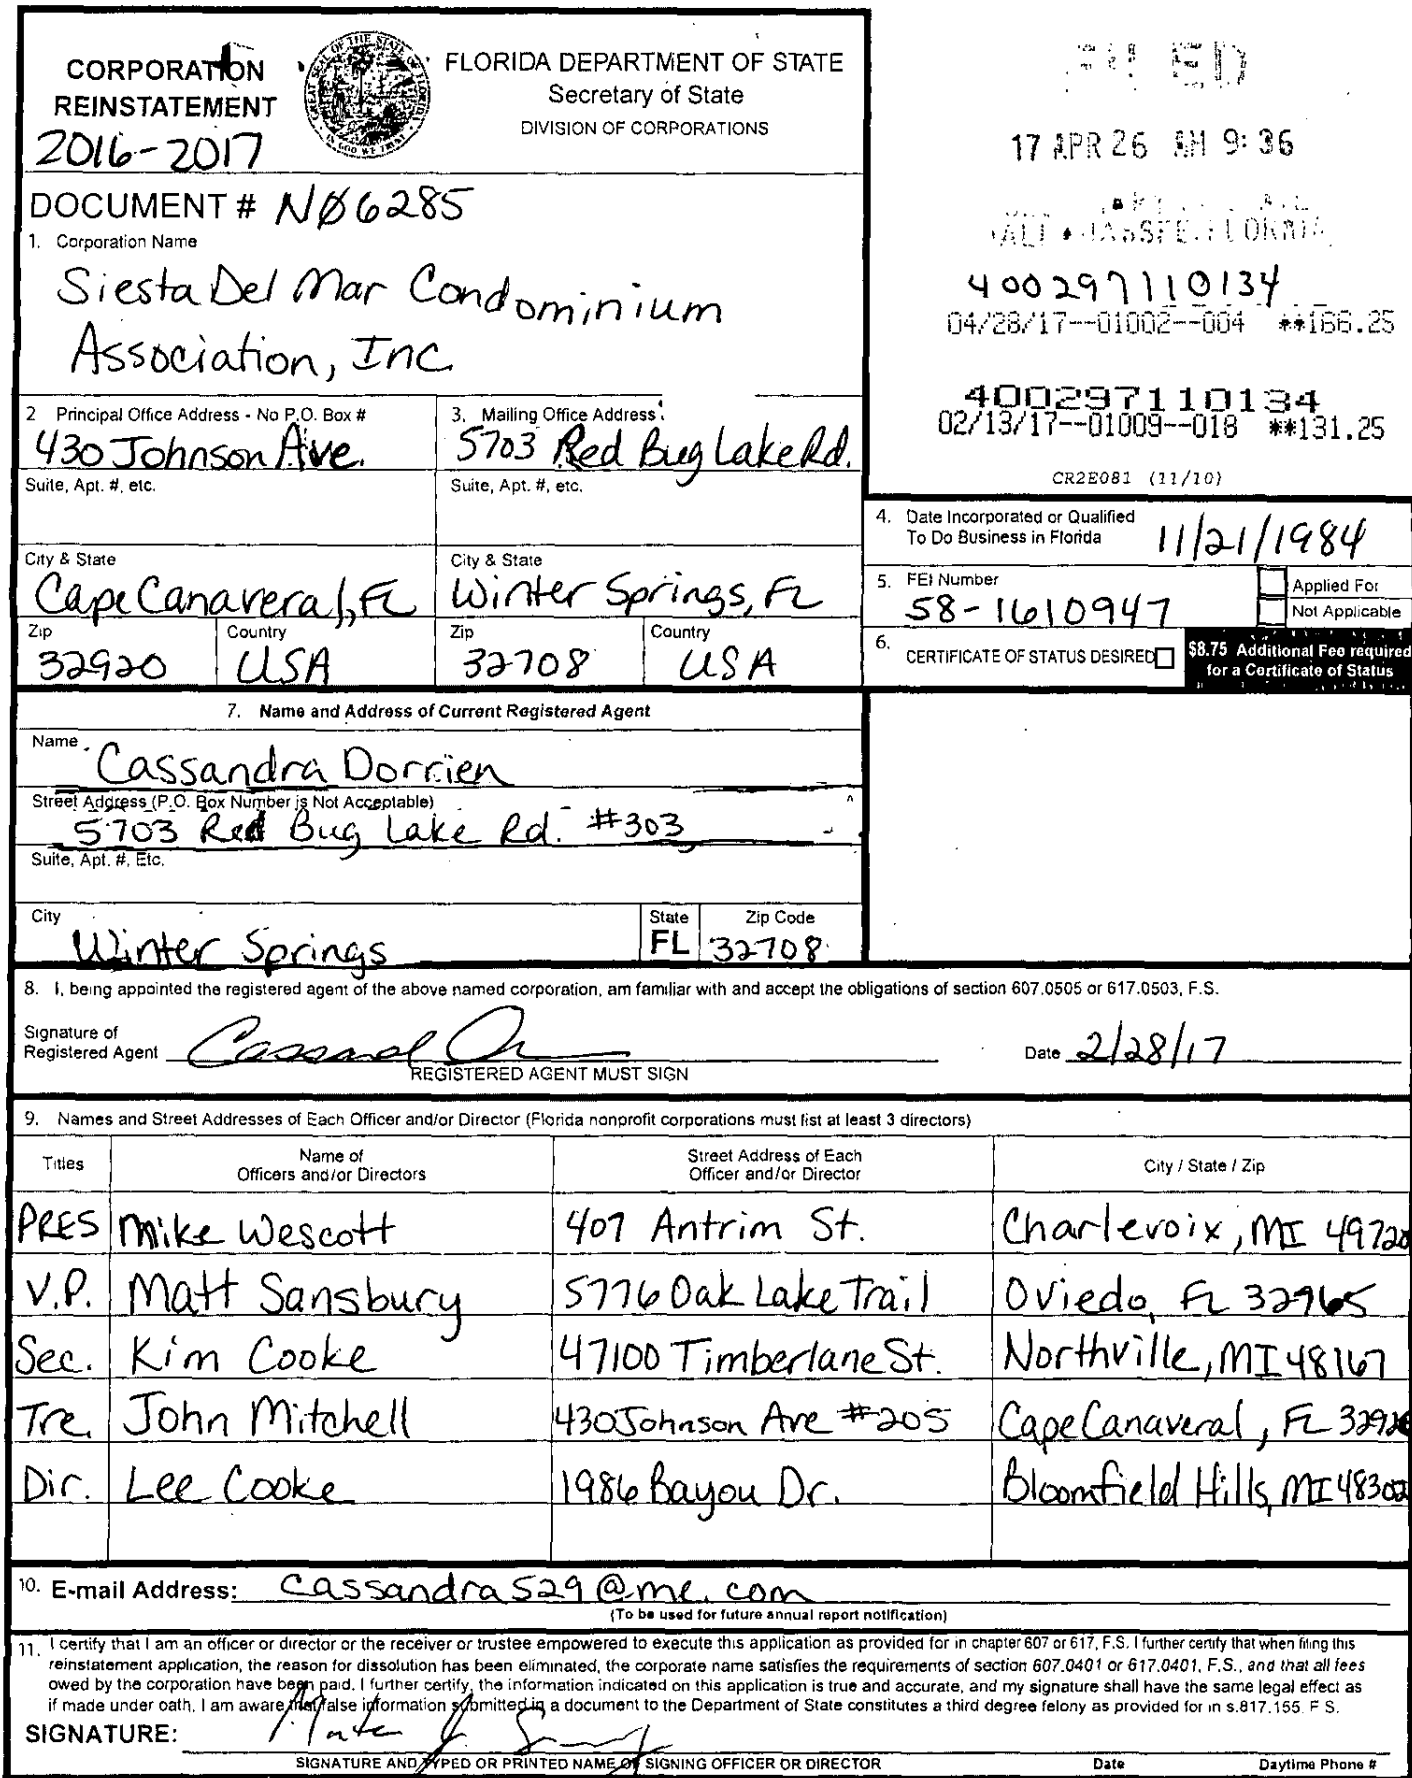 CORPORATION
REINSTATEMENT
2016-2017
FLORIDA DEPARTMENT OF STATE
Secretary of State
DIVISION OF CORPORATIONS
17 APR 26 AM 9:36
DOCUMENT # NØ6285
1. Corporation Name
Siesta Del Mar Condominium
Association, Inc.
400297110134
04/28/17--01002--004 **166.25
400297110134
02/13/17--01009--018 **131.25
CR2E081 (11/10)
2 Principal Office Address - No P.O. Box #
430 Johnson Ave.
3. Mailing Office Address
5703 Red Bug Lake Rd.
Suite, Apt. #, etc.
Suite, Apt. #, etc.
City & State
Cape Canaveral, FL
City & State
Winter Springs, FL
Zip
32920
Country
USA
Zip
32708
Country
USA
4. Date Incorporated or Qualified
To Do Business in Florida
11/21/1984
5. FEI Number
58-1610947
Applied For
Not Applicable
6. CERTIFICATE OF STATUS DESIRED
$8.75 Additional Fee required
for a Certificate of Status
7. Name and Address of Current Registered Agent
Name
Cassandra Dorrien
Street Address (P.O. Box Number is Not Acceptable)
5703 Red Bug Lake Rd. #303
Suite, Apt. #, Etc.
City
Winter Springs
State
FL
Zip Code
32708
8. I, being appointed the registered agent of the above named corporation, am familiar with and accept the obligations of section 607.0505 or 617.0503, F.S.
Signature of
Registered Agent
REGISTERED AGENT MUST SIGN
Date 2/28/17
9. Names and Street Addresses of Each Officer and/or Director (Florida nonprofit corporations must list at least 3 directors)
Titles
Name of
Officers and/or Directors
Street Address of Each
Officer and/or Director
City / State / Zip
PRES Mike Wescott 407 Antrim St. Charlevoix, MI 49720
V.P. Matt Sansbury 5776 Oak Lake Trail Oviedo, FL 32765
Sec. Kim Cooke 47100 Timberlane St. Northville, MI 48167
Tre. John Mitchell 430 Johnson Ave #205 Cape Canaveral, FL 32920
Dir. Lee Cooke 1986 Bayou Dr. Bloomfield Hills, MI 48302
10. E-mail Address: cassandra529@me.com
(To be used for future annual report notification)
11. I certify that I am an officer or director or the receiver or trustee empowered to execute this application as provided for in chapter 607 or 617, F.S. I further certify that when filing this
reinstatement application, the reason for dissolution has been eliminated, the corporate name satisfies the requirements of section 607.0401 or 617.0401, F.S., and that all fees
owed by the corporation have been paid. I further certify, the information indicated on this application is true and accurate, and my signature shall have the same legal effect as
if made under oath. I am aware that false information submitted in a document to the Department of State constitutes a third degree felony as provided for in s.817.155. F S.
SIGNATURE:
SIGNATURE AND TYPED OR PRINTED NAME OF SIGNING OFFICER OR DIRECTOR
Date
Daytime Phone #